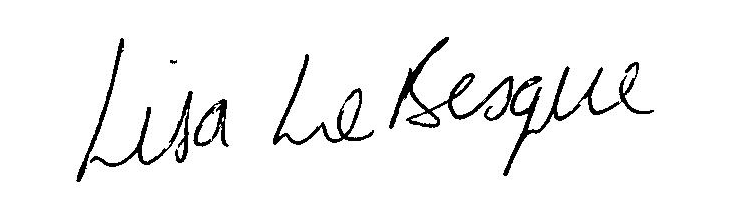 Lisa Le Besque